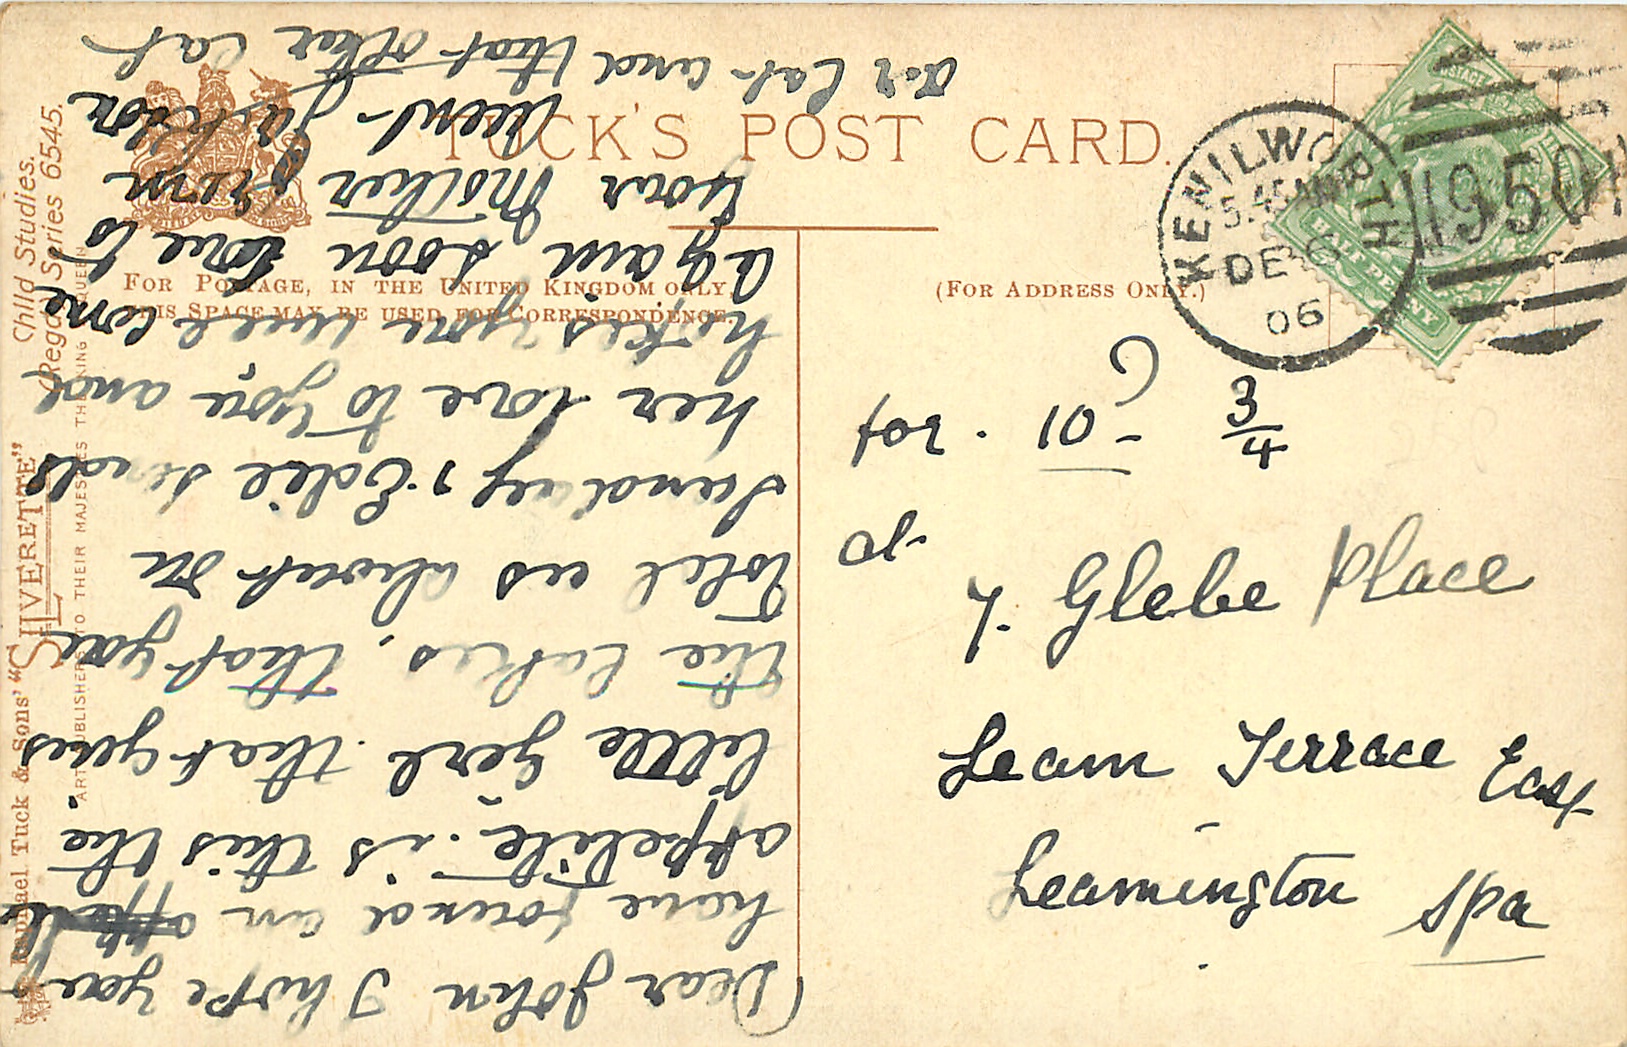 TUCK'S POST CARD.
FOR POSTAGE, IN THE UNITED KINGDOM ONLY
THIS SPACE MAY BE USED FOR CORRESPONDENCE
(FOR ADDRESS ONLY.)
KENILWORTH
5.45 AM
DE 6
06
HALF PENNY
10 - 3/4
at
7. Glebe Place
Leam Terrace East
Leamington Spa
Raphael Tuck & Sons' "SILVERETTE"
ART PUBLISHERS TO THEIR MAJESTIES THE KING QUEEN
Child Studies.
(Regd) Series 6545.
Dear John I hope you
have found an
appetite. is this the
little girl that gives
the cakes, that you
told us about on
Sunday, Edie sends
her love to you and
hopes you will come
again soon love to
your Mother from
Aunt
and that other